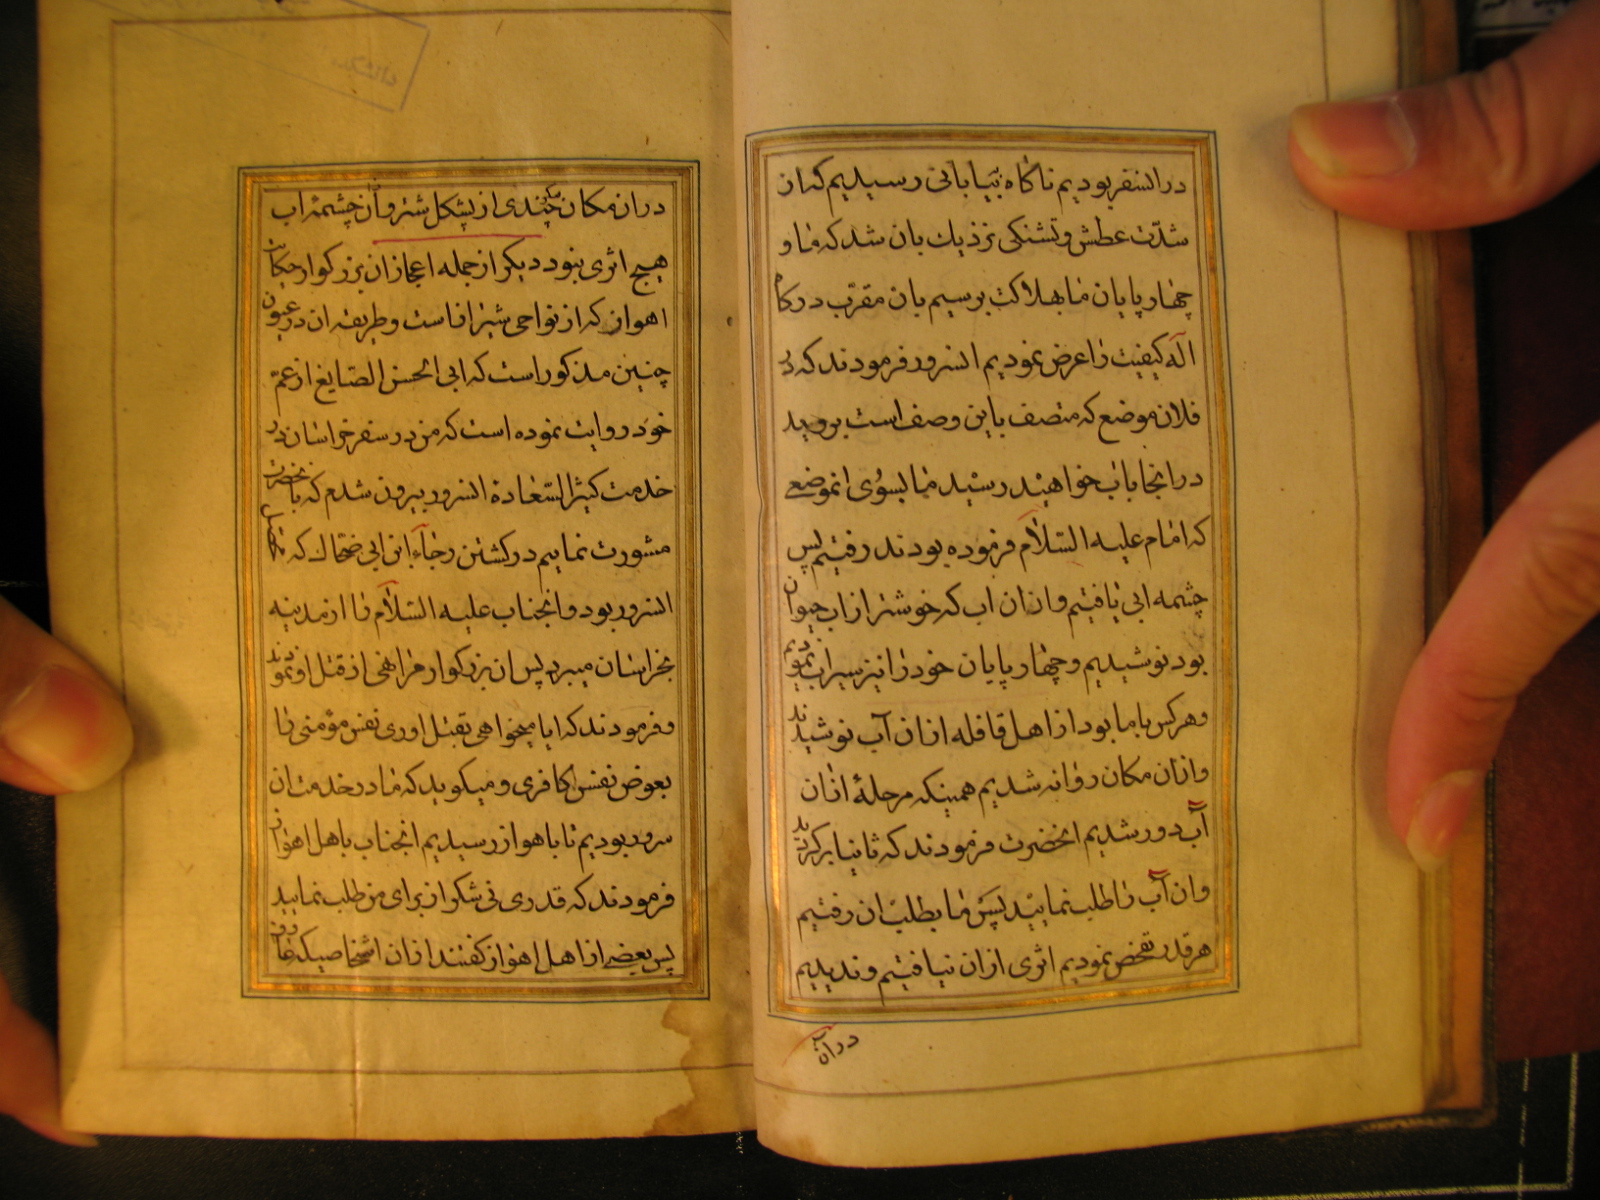 درانسفر بودیم ناکاه ببیابانی رسیدیم که از
شدّت عطش و تشنکی نزدیك بان شد که ما و
چهارپایان ما بهلاکت برسیم بان مقرّب درکاه
آله کیفیت را عرض نمودیم انسرور فرمودند که در
فلان موضع که متصف باین وصف است بروید
درانجا باب خواهند رسید ما بسوی انموضعے
که امام علیه السّلاٰم فرموده بودند رفتیم پس
چشمه ابی یافتیم و ازان اب که خوشتر از اب حیوان
بود نوشیدیم و چهارپایان خود را نیز سیراب نمودیم
و هرکس باما بود از اهل قافله ازان آب نوشیدند
و ازان مکان روانه شدیم همینکه مرحلهٔ ازان
آب دور شدیم انحضرت فرمودند که ثانیا برکردید
و ان آب را طلب نمایید پس ما بطلب ان رفتیم
هر قدر تفحص نمودیم اثری ازان نیافتیم و ندیدیم
دران
دران مکان مکر چندی از پشکل شتر و از ان چشمهٔ اب
هیچ اثری نبود دیکر از جمله اعجاز ان بزرکوار حکایت
اهواز که از نواحی شیراز است و طریقه ان در عیون
چنین مذکور است که ابی الحسن الصّایغ از عمّ
خود روایت نموده است که من در سفر خراسان در
خدمت کثیر السّعادة انسرور بیرون شدم که بانحضرت
مشورت نمایم در کشتن رجآء ابن ابی ضحّاك که
انسرور بود و انجناب علیه السّلاٰم را از مدینه
بخراسان میبرد پس ان بزرکوار مرا نهی از قتل او نمودند
و فرمودند که ایا میخواهی بقتل اوری نفس مؤمنی را
بعوض نفس کافری و میکوید که ما در خدمت ان
سرور بودیم تا باهواز رسیدیم انجناب باهل اهواز
فرمودند که قدری نی شکر از برای من طلب نمایید
پس بعضے از اهل اهواز کفتند ازان اشخاصیکه